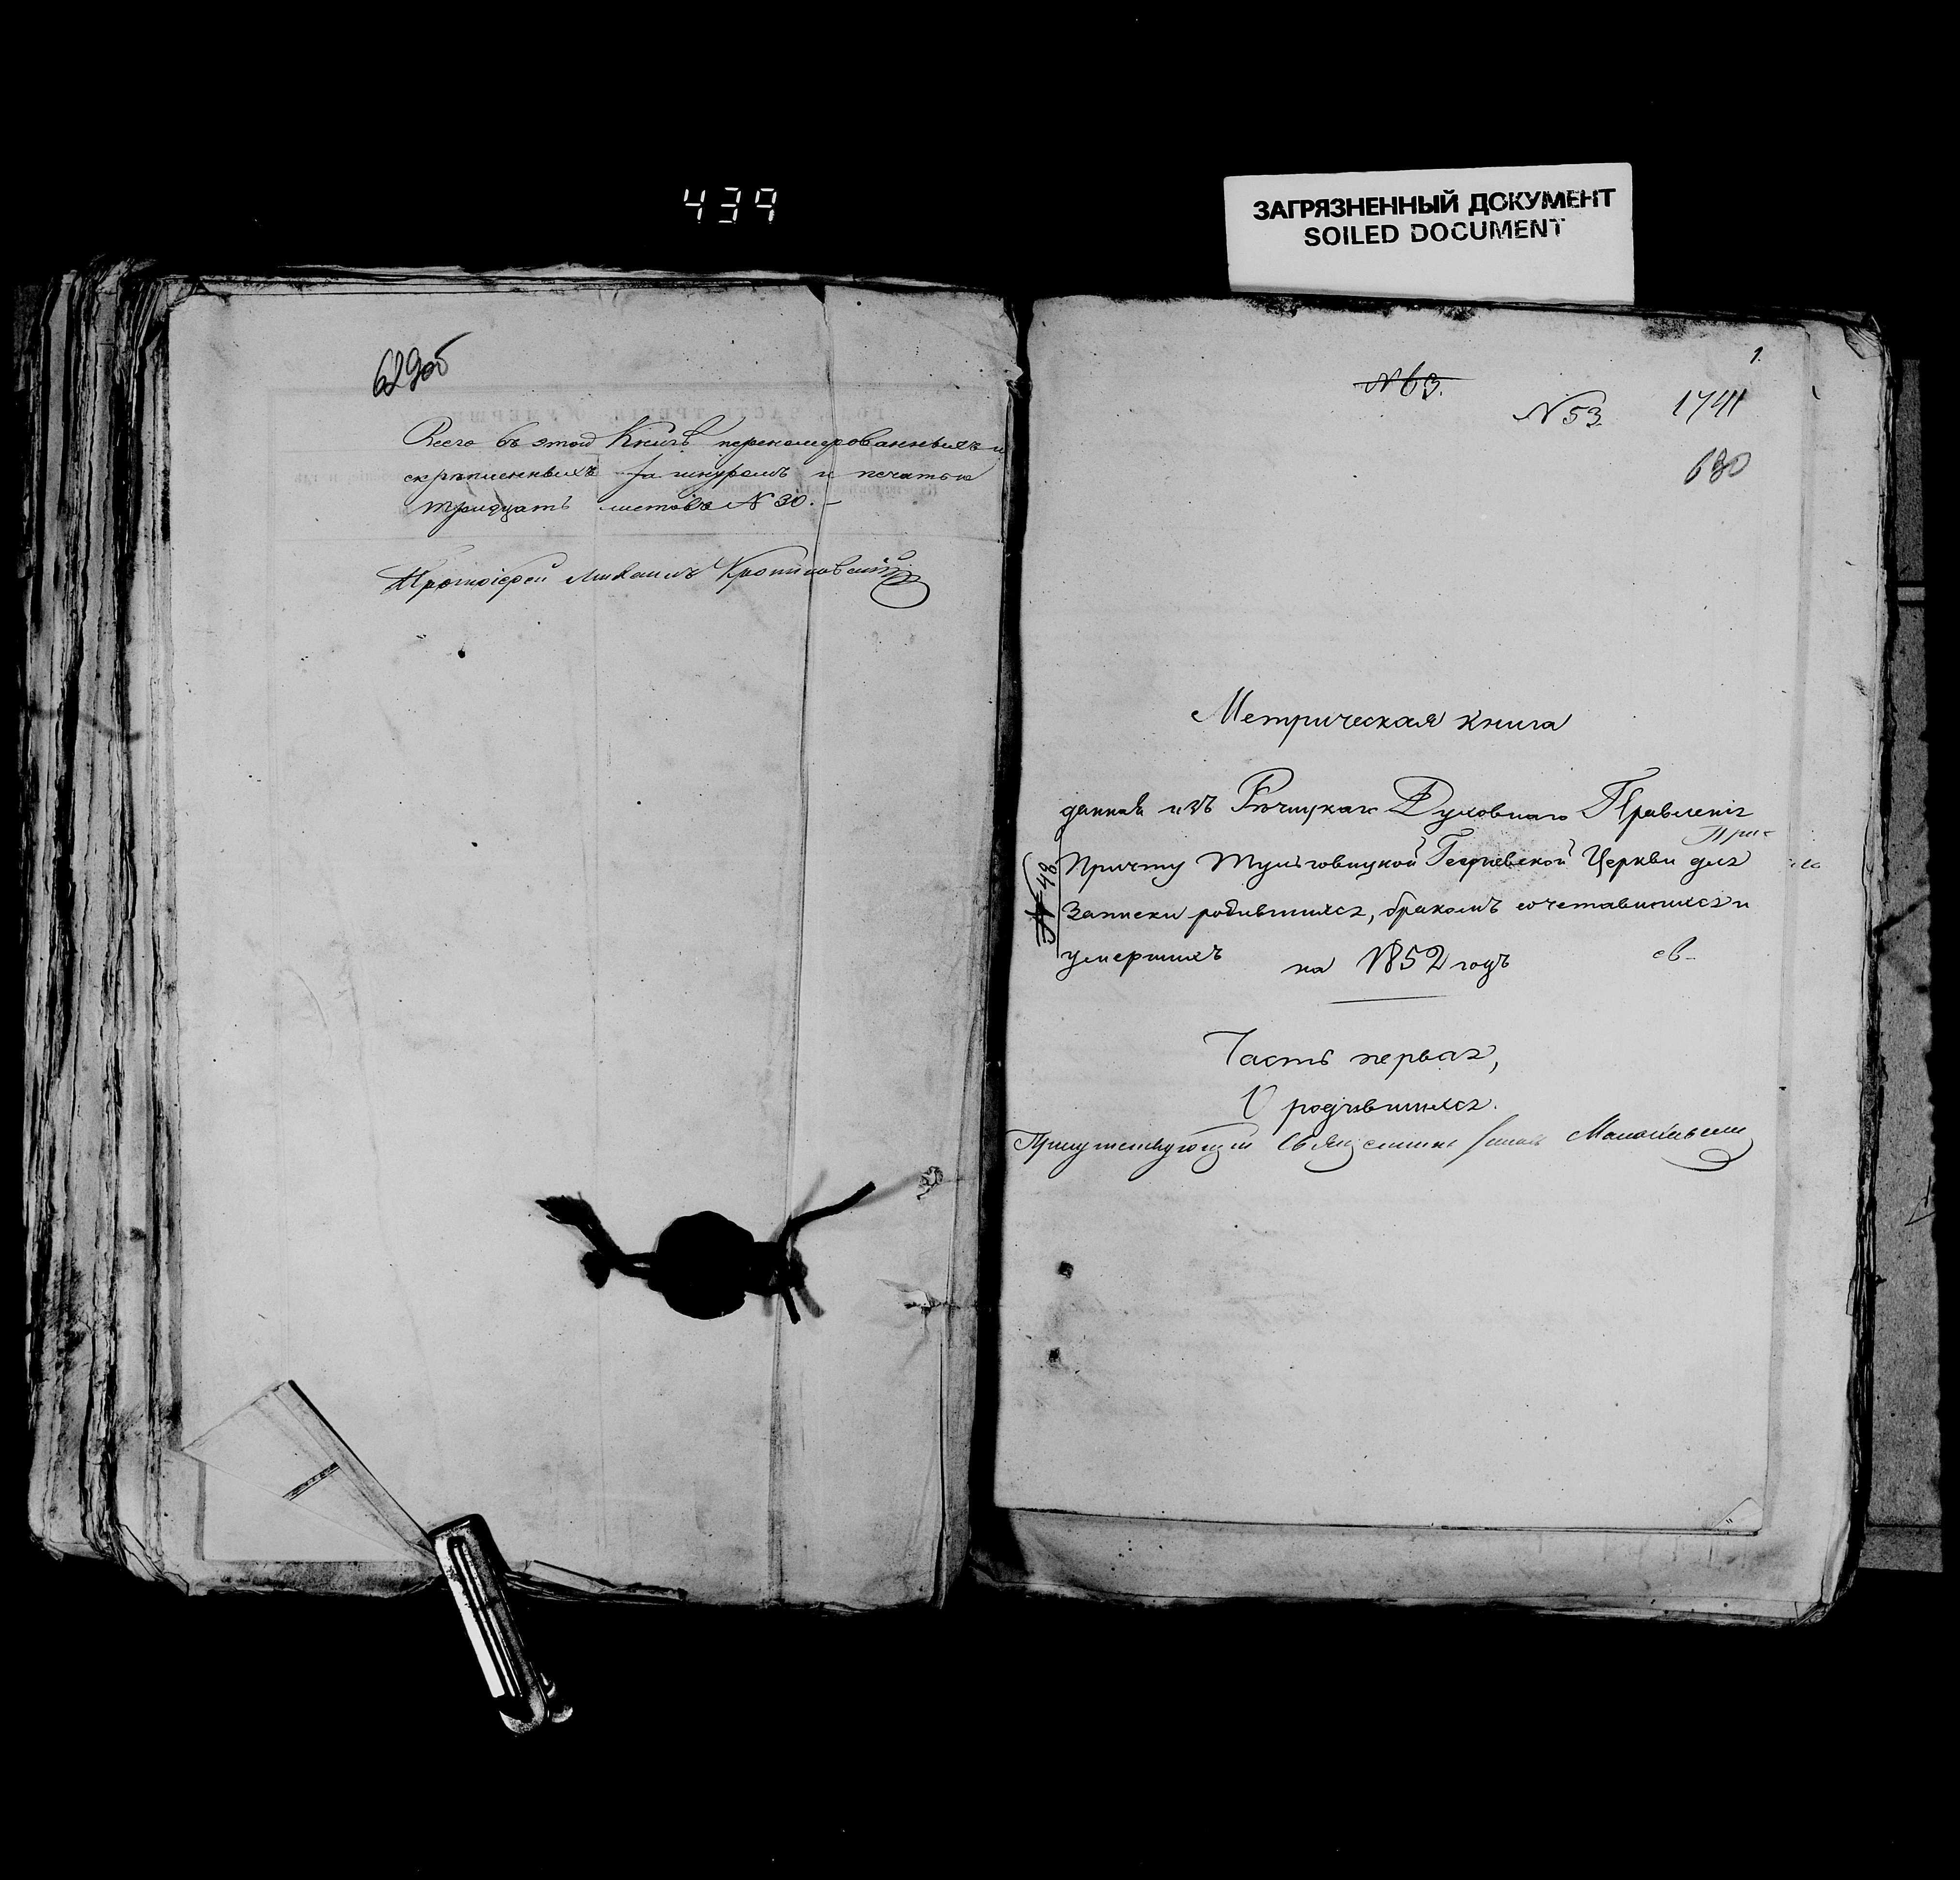 439
ЗАГРЯЗНЕННЫЙ ДОКУМЕНТ
SOILED DOCUMENT
629об
Всего въ этой Книгѣ переномерованныхъ и
скрѣпленныхъ за шнуромъ и печатью
тридцать листовъ N 30.-
Протоіерей Михаилъ
1.
N 63.
N 53.
1741
630
Метрическая книга
данная изъ Рѣчицкаго Духовнаго Правленія
Причту Тульговицкой Георгіевской Церкви для
Записки родившихся, бракомъ сочетавшихся и
умершихъ на 1852 годъ
N 48
Часть первая,
О родившихся.
Присутствующій Священникъ